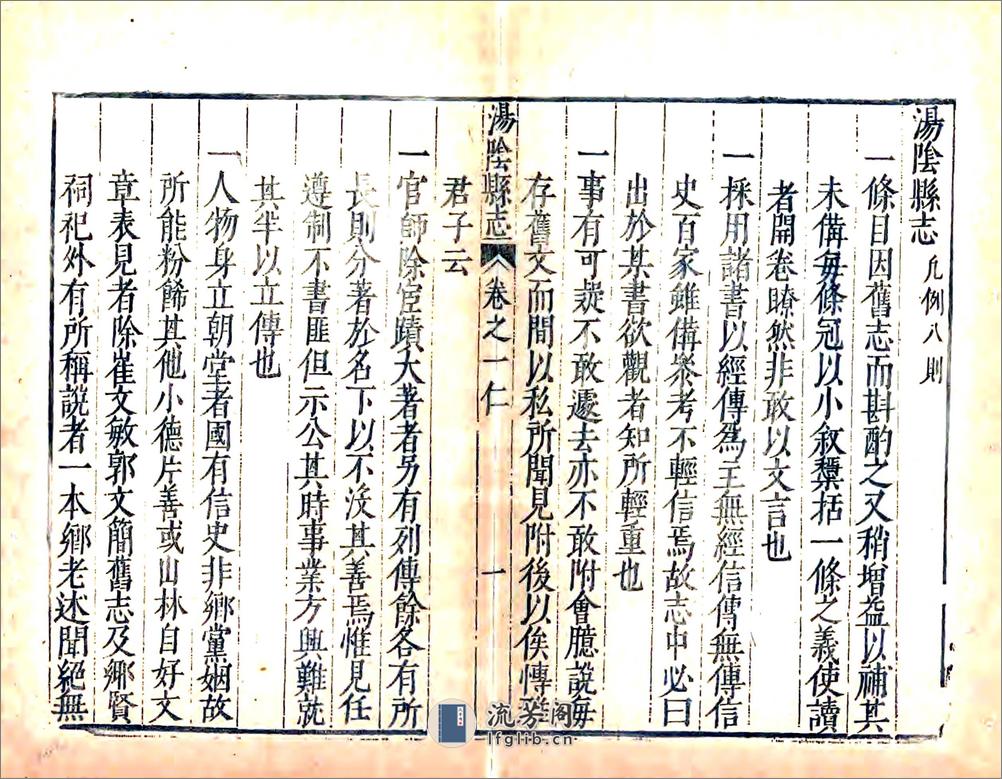 湯陰縣志 凡例八則
一條目因舊志而斟酌之又稍增益以補其
未備每條冠以小敘櫽括一條之義使讀
者開卷瞭然非敢以文言也
一採用諸書以經傳爲主無經信傳無傳信
史百家雖備叅考不輕信焉故志中必曰
出於某書欲觀者知所輕重也
一事有可疑不敢遽去亦不敢附會臆說每
存舊文而間以私所聞見附後以俟博雅
君子云
湯陰縣志 卷之一 仁 一
一官師除宦蹟大著者另有列傳餘各有所
長則分著於名下以不沒其善焉惟見任
遵制不書匪但示公其時事業方興難就
其半以立傳也
一人物身立朝堂者國有信史非鄉黨姻故
所能粉餙其他小德片善或山林自好文
章表見者除崔文敏郭文簡舊志及鄉賢
祠祀外有所稱說者一本鄉老述聞絕無
流芳阁
lfglib.cn